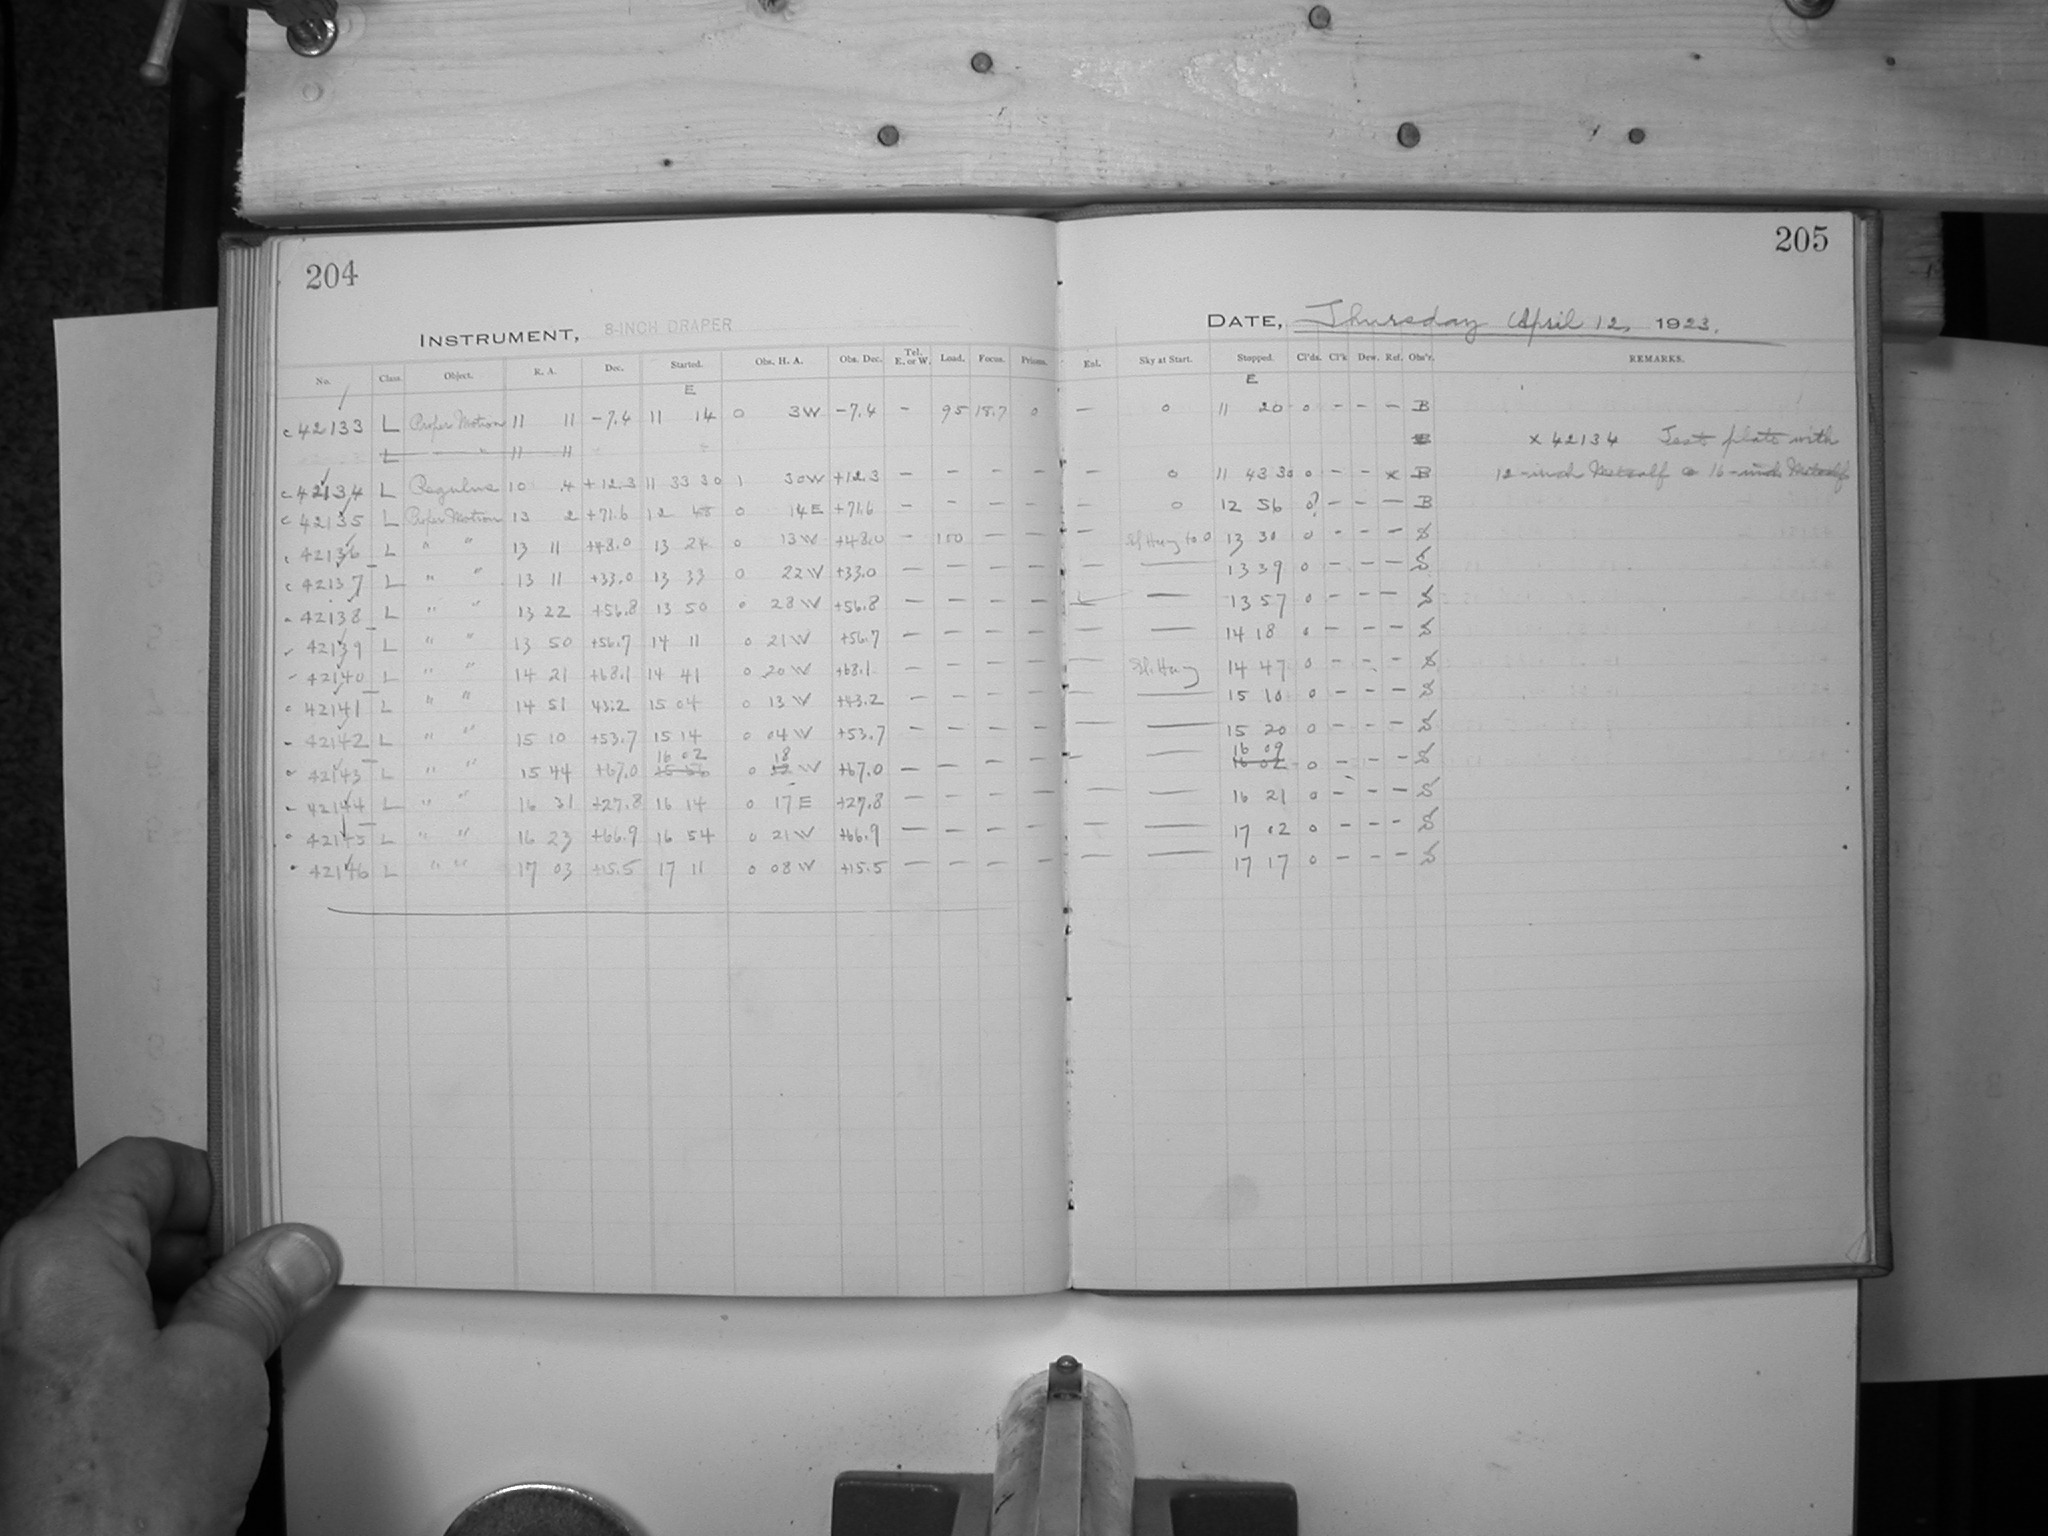 204
INSTRUMENT, 8-INCH DRAPER
No. Class. Object. R. A. Dec. Started. Obs. H. A. Obs. Dec. Tel. E. or W. Load. Focus. Prisms.
E
c 42133 L Proper Motion 11 11 -7.4 11 14 0 3W -7.4 - 95 18.7 0
L " 11 11
c 42134 L Regulus 10 .4 +12.3 11 33 30 1 30W +12.3 - - - -
c 42135 L Proper Motion 13 2 +71.6 12 48 0 14E +71.6 - - - -
c 42136 L " " 13 11 +48.0 13 24 0 13W +48.0 - 100 - -
c 42137 L " " 13 11 +33.0 13 33 0 22W +33.0 - - - -
42138 L " " 13 22 +56.8 13 50 0 28W +56.8 - - - -
42139 L " " 13 50 +56.7 14 11 0 21W +56.7 - - - -
42140 L " " 14 21 +68.1 14 41 0 20W +68.1 - - - -
c 42141 L " " 14 51 43.2 15 04 0 13W +43.2 - - - -
42142 L " " 15 10 +53.7 15 14 0 04W +53.7 - - - -
16 02 18
42143 L " " 15 44 +67.0 15 56 0 W +67.0 - - - -
42144 L " " 16 31 +27.8 16 14 0 17E +27.8 - - - -
42145 L " " 16 23 +66.9 16 54 0 21W +66.9 - - - -
42146 L " " 17 03 +15.5 17 11 0 08W +15.5 - - - -
205
DATE, Thursday April 12, 1923.
Enl. Sky at Start. Stopped. Cl'ds. Cl'k Drw. Ref. Obs'r. REMARKS.
E
- 0 11 20 0 - - - B
B x 42134 Test plate with
- 0 11 43 30 0 - - x B 12-inch Metcalf @ 16-inch Metcalf
- 0 12 56 0? - - - B
Sl. Hazy to 0 13 30 0 - - - S
- — 13 39 0 - - - S
- — 13 57 0 - - - S
- — 14 18 0 - - - S
- Sl. Hazy 14 47 0 - - - S
- — 15 10 0 - - - S
- — 15 20 0 - - - S
16 09
- — 16 02 0 - - - S
- — 16 21 0 - - - S
- — 17 02 0 - - - S
- — 17 17 0 - - - S